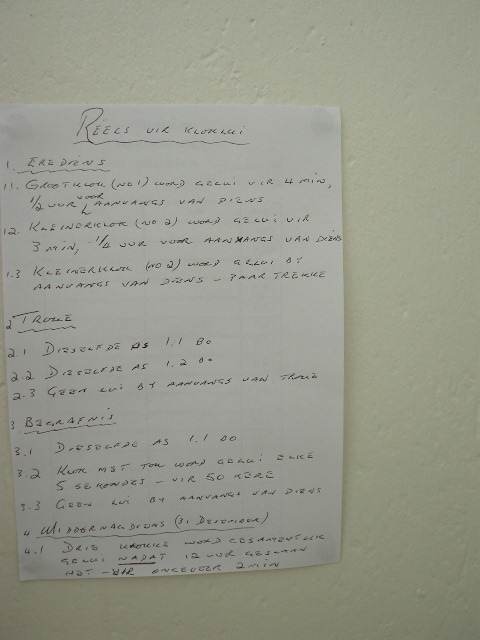 REËLS VIR KLOKLUI
1. EREDIENS
1.1. GROOTKLOK (NO 1) WORD GELUI VIR 4 MIN,
1/2 UUR VOOR AANVANGS VAN DIENS
1.2. KLEINERKLOK (NO 2) WORD GELUI VIR
3 MIN, -1/4 UUR VOOR AANVANGS VAN DIENS
1.3 KLEINERKLOK (NO 2) WORD GELUI BY
AANVANGS VAN DIENS - PAAR TREKKE
2 TROUE
2.1 DIESELFDE AS 1.1 BO
2.2 DIESELFDE AS 1.2 BO
2.3 GEEN LUI BY AANVANGS VAN TROUE
3 BEGRAFNIS
3.1 DIESELFDE AS 1.1 BO
3.2 KLOK MET TOU WORD GELUI ELKE
5 SEKONDES - VIR 50 KERE
3.3 GEEN LUI BY AANVANGS VAN DIENS
4 MIDDERNAGDIENS (31 DESEMBER)
4.1 DRIE KLOKKE WORD GESAMENTLIK
GELUI NADAT 12 UUR GESLAAN
HET - VIR ONGEVEER 2 MIN